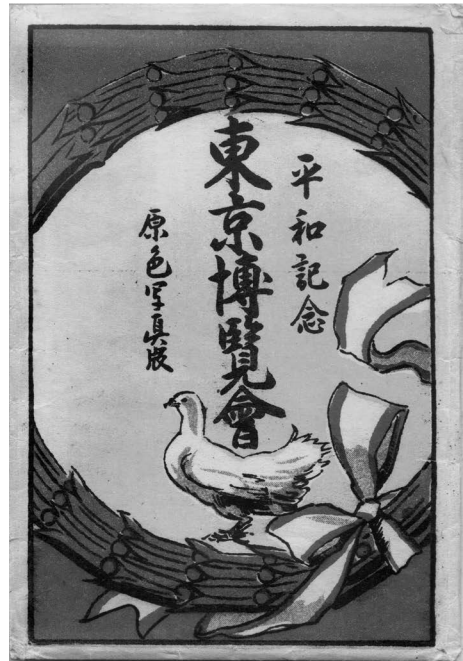 平和記念
東京博覧會
原色写真版